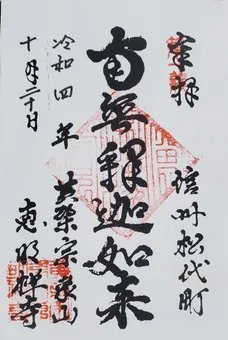 奉拝
信州松代町
南無釋迦如来
黄檗宗象山
恵明禅寺
令和四年
十月二十日